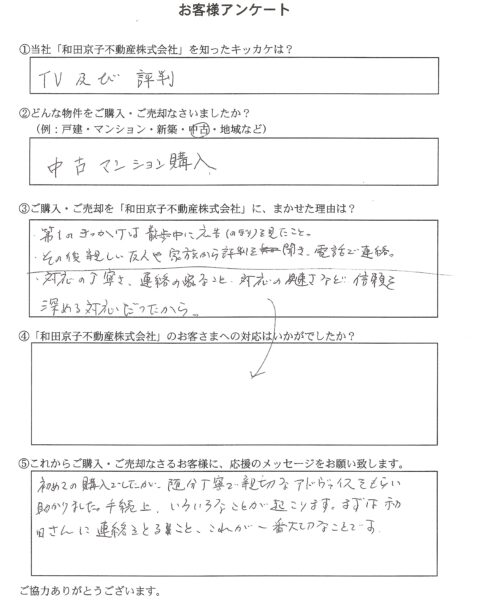 お客様アンケート
①当社「和田京子不動産株式会社」を知ったキッカケは？
TV 及び 評判
②どんな物件をご購入・ご売却なさいましたか？
（例：戸建・マンション・新築・中古・地域など）
中古 マンション購入
③ご購入・ご売却を「和田京子不動産株式会社」に、まかせた理由は？
・第1のきっかけは散歩中に広告(のぼり)を見たこと。
・その後親しい友人や家族から評判を聞き、電話で連絡。
・対応の丁寧さ、連絡の密なこと、対応の速さなど 信頼を
深める対応だったから。
④「和田京子不動産株式会社」のお客さまへの対応はいかがでしたか？
⑤これからご購入・ご売却なさるお客様に、応援のメッセージをお願い致します。
初めての購入でしたが、随分丁寧で親切なアドヴァイスをもらい
助かりました。手続上、いろいろなことが起こります。まずは和
田さんに連絡をとること、これが一番大切なことです
ご協力ありがとうございます。